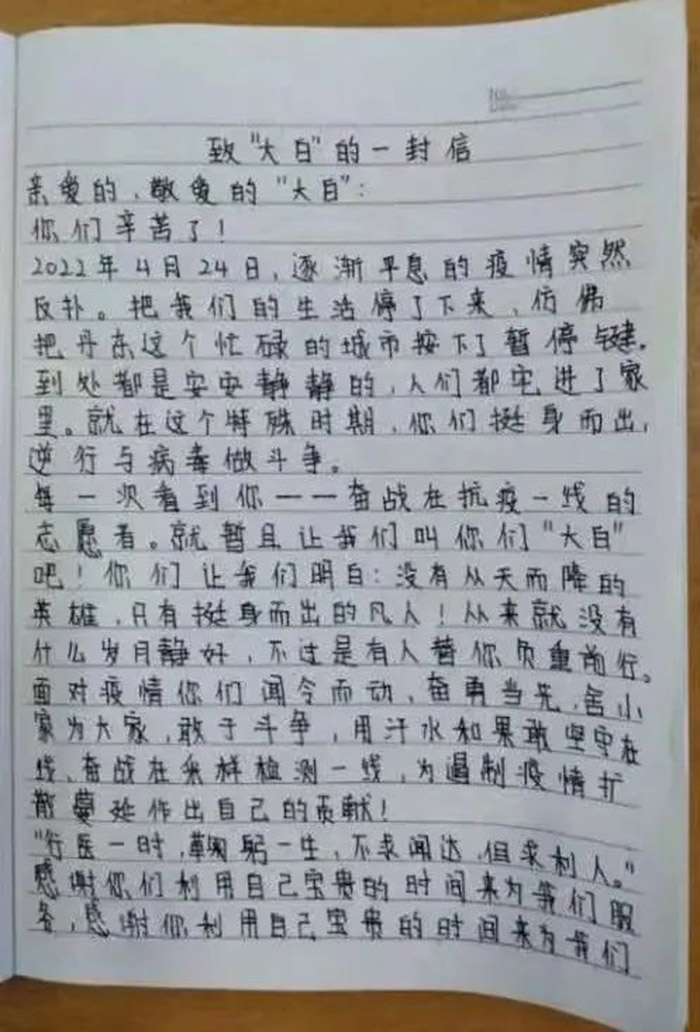 No.
Date
致"大白"的一封信
亲爱的、敬爱的"大白":
你们辛苦了!
2022年4月24日,逐渐平息的疫情突然
反扑。把我们的生活停了下来,仿佛
把丹东这个忙碌的城市按下了暂停键。
到处都是安安静静的,人们都宅进了家
里。就在这个特殊时期,你们挺身而出,
逆行与病毒做斗争。
每一次看到你——奋战在抗疫一线的
志愿者。就暂且让我们叫你们"大白"
吧!你们让我们明白:没有从天而降的
英雄,只有挺身而出的凡人!从来就没有
什么岁月静好,不过是有人替你负重前行。
面对疫情你们闻令而动,奋勇当先,舍小
家为大家,敢于斗争,用汗水和果敢坚守在
线、奋战在采样检测一线,为遏制疫情扩
散蔓延作出自己的贡献!
"行医一时,鞠躬一生,不求闻达,但求利人。"
感谢你们利用自己宝贵的时间来为我们服
务,感谢你利用自己宝贵的时间来为我们